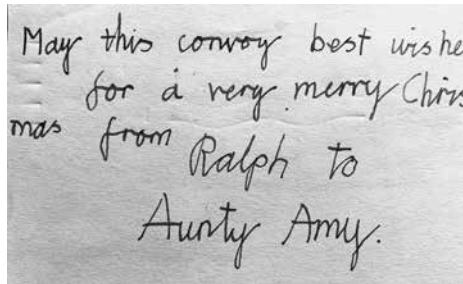 May this convoy best wishe
for a very merry Chris
mas from
Ralph to
Aunty Amy.